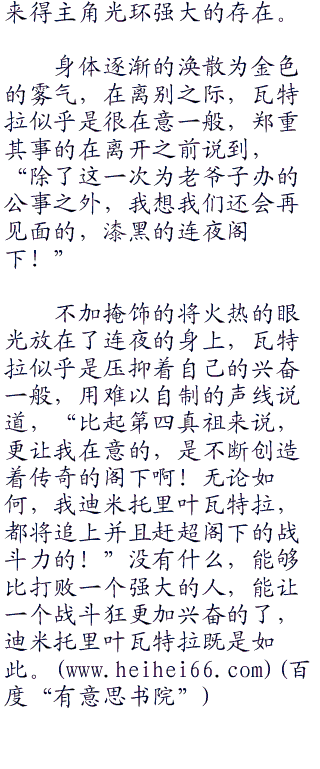 来得主角光环强大的存在。
身体逐渐的涣散为金色
的雾气，在离别之际，瓦特
拉似乎是很在意一般，郑重
其事的在离开之前说到，
“除了这一次为老爷子办的
公事之外，我想我们还会再
见面的，漆黑的连夜阁
下！”
不加掩饰的将火热的眼
光放在了连夜的身上，瓦特
拉似乎是压抑着自己的兴奋
一般，用难以自制的声线说
道，“比起第四真祖来说，
更让我在意的，是不断创造
着传奇的阁下啊！无论如
何，我迪米托里叶瓦特拉，
都将追上并且赶超阁下的战
斗力的！”没有什么，能够
比打败一个强大的人，能让
一个战斗狂更加兴奋的了，
迪米托里叶瓦特拉既是如
此。(www.heihei66.com)(百
度“有意思书院”)